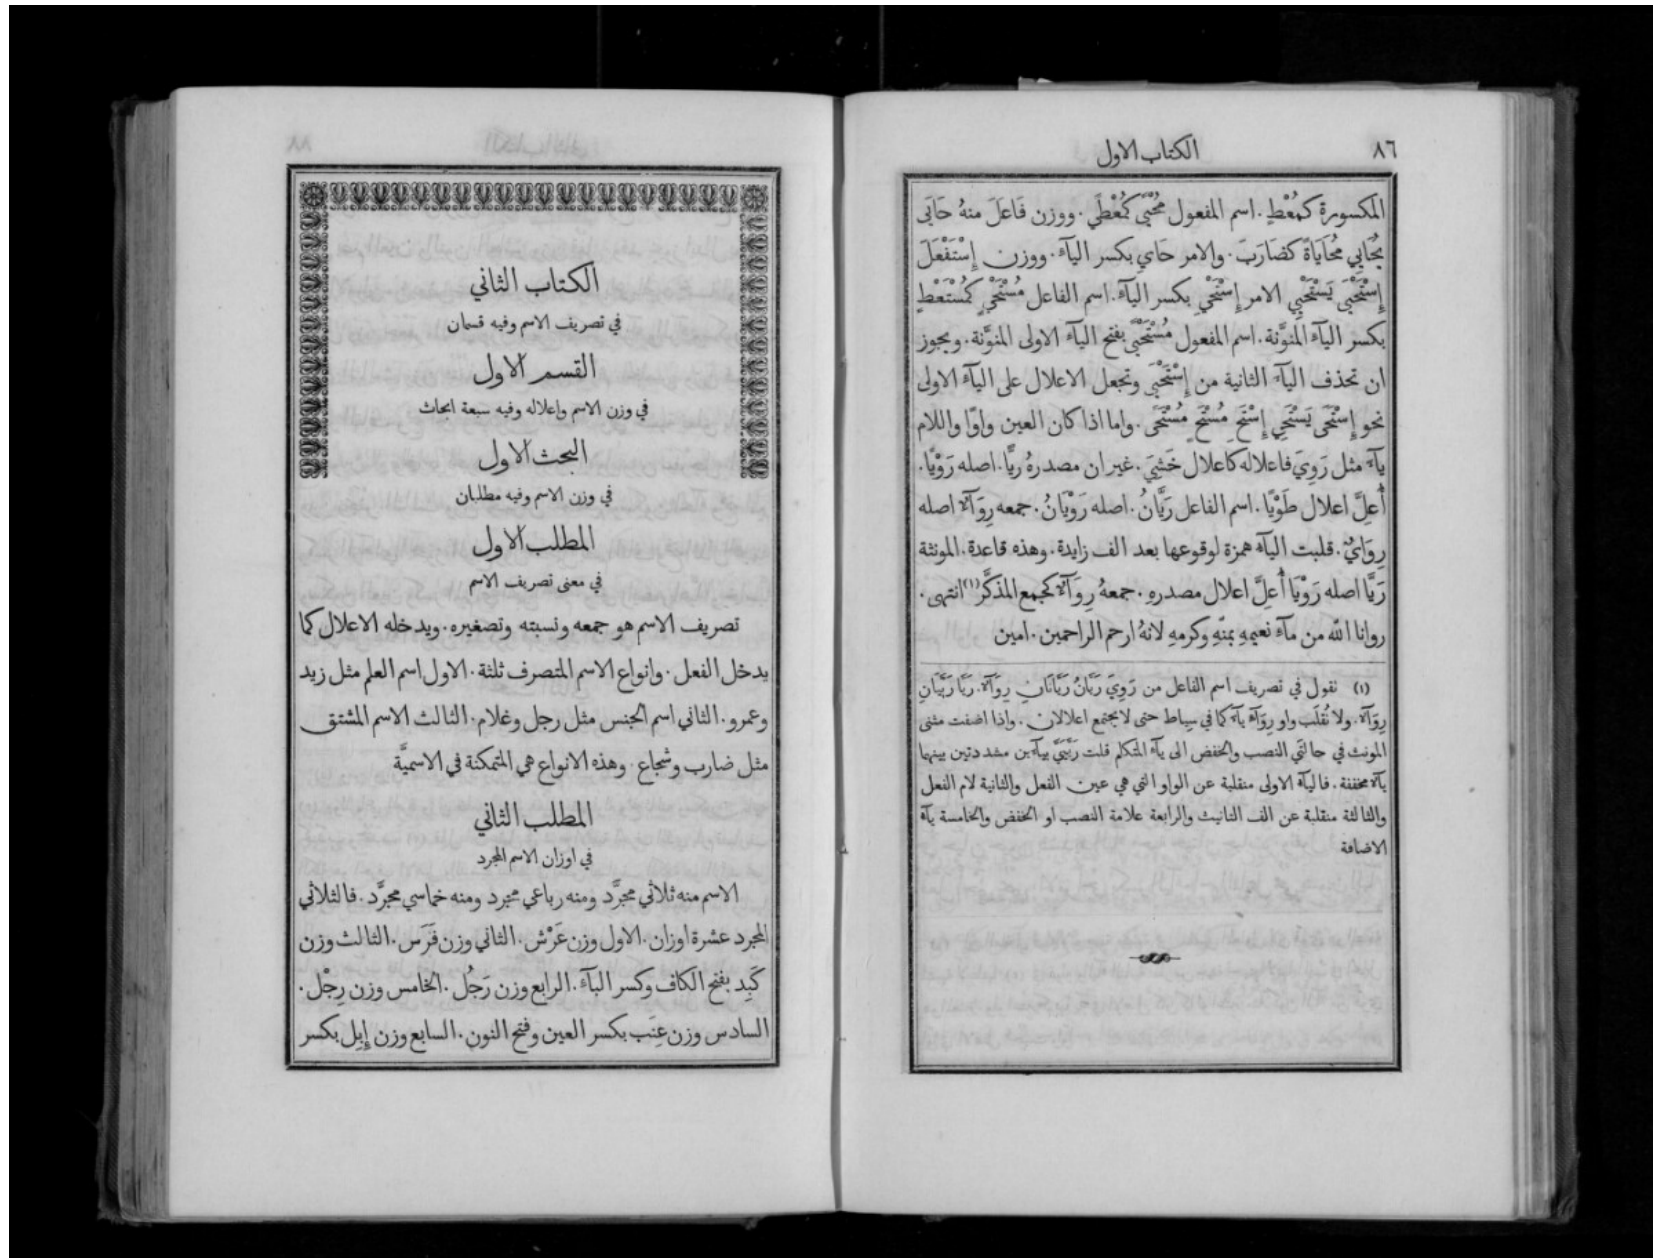 ٨٦
الكتاب الاول
المكسورة كمُعْطٍ. اسم المفعول مُحْيًى كمُعْطًى. ووزن فَاعَلَ منهُ حَايَى
يُحَايِي مُحَايَاةً كضَارَبَ. والامر حَايِ بكسر اليآءِ. ووزن إِسْتَفْعَلَ
إِسْتَحْيَى يَسْتَحْيِي الامر إِسْتَحْيِ بكسر اليآءِ. اسم الفاعل مُسْتَحْيٍ كمُسْتَعْطٍ
بكسر اليآءِ المنوَّنة. اسم المفعول مُسْتَحْيًى بفتح اليآءِ الاولى المنوَّنة. ويجوز
ان تحذف اليآءَ الثانية من إِسْتَحْيَى وتجعل الاعلال على اليآءِ الاولى
نحو إِسْتَحَى يَسْتَحِي إِسْتَحِ مُسْتَحٍ مُسْتَحًى. واما اذا كان العين واوًا واللام
يآءً مثل رَوِيَ فاعلاله كاعلال خَشِيَ. غير ان مصدرهُ رِيًّا. اصله رَوْيًا.
أُعِلَّ اعلال طَوْيًا. اسم الفاعل رَيَّانُ. اصله رَوْيَانُ. جمعه رِوَآءٌ اصله
رِوَايٌ. قلبت اليآءُ همزة لوقوعها بعد الف زايدة. وهذه قاعدة. المونثة
رَيَّا اصله رَوْيَا أُعِلَّ اعلال مصدرهِ. جمعهُ رِوَآءٌ كجمع المذكَّر (١) انتهى.
روانا الله من مآءِ نعيمهِ بمنّهِ وكرمهِ لانهُ ارحم الراحمين. امين
(١) نقول في تصريف اسم الفاعل من رَوِيَ رَيَّانُ رَيَّانَانِ رِوَآءٌ. رَيَّا رَيَّيَانِ
رِوَآءٌ. ولا تُقلَب واو رِوَآءٌ يآءً كما في سِيَاط حتى لا يجتمع اعلالان. واذا اضفت مثنى
المونث في حالتَي النصب والخفض الى يآءِ المتكلم قلت رَيَّيَيَّ بيآءَين مشددتين بينهما
يآءٌ مخففة. فاليآءُ الاولى منقلبة عن الواو التي هي عين الفعل والثانية لام الفعل
والثالثة منقلبة عن الف التانيث والرابعة علامة النصب او الخفض والخامسة يآءُ
الاضافة
الكتاب الثاني
في تصريف الاسم وفيه قسمان
القسم الاول
في وزن الاسم واعلاله وفيه سبعة ابحاث
البحث الاول
في وزن الاسم وفيه مطلبان
المطلب الاول
في معنى تصريف الاسم
تصريف الاسم هو جمعه ونسبته وتصغيره. ويدخله الاعلال كما
يدخل الفعل. وانواع الاسم المتصرف ثلثة. الاول اسم العلم مثل زيد
وعمرو. الثاني اسم الجنس مثل رجل وغلام. الثالث الاسم المشتق
مثل ضارب وشجاع. وهذه الانواع هي المتمكنة في الاسميَّة
المطلب الثاني
في اوزان الاسم المجرد
الاسم منه ثلاثي مجرَّد ومنه رباعي مجرد ومنه خماسي مجرَّد. فالثلاثي
المجرد عشرة اوزان. الاول وزن عَرْش. الثاني وزن فَرَس. الثالث وزن
كَبِد بفتح الكاف وكسر البآءِ. الرابع وزن رَجُل. الخامس وزن رِجْل.
السادس وزن عِنَب بكسر العين وفتح النون. السابع وزن إِبِل بكسر